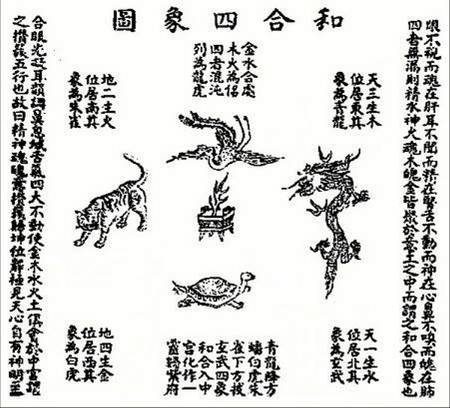 和合四象圖
眼不視而魂在肝耳不聞而精在腎舌不動而神在心鼻不嗅而魄在肺
四者無漏則精水神火魂木魄金皆聚於意土之中而謂之和合四象也
天三生木
位居東其
象為青龍
金水合處
木火為侶
四者混沌
列為龍虎
地二生火
位居南其
象為朱雀
天一生水
位居北其
象為玄武
青龍降方
蟠白虎朱
雀下方援
玄武四象
和合入中
宮化作一
靈歸紫府
地四生金
位居西其
象為白虎
合眼光凝耳韻調鼻息緘舌氣四大不動使金木水火土俱會於中宮謂
之攢簇五行也故曰精神魂魄意攢簇歸坤位靜極見天心自有神明至